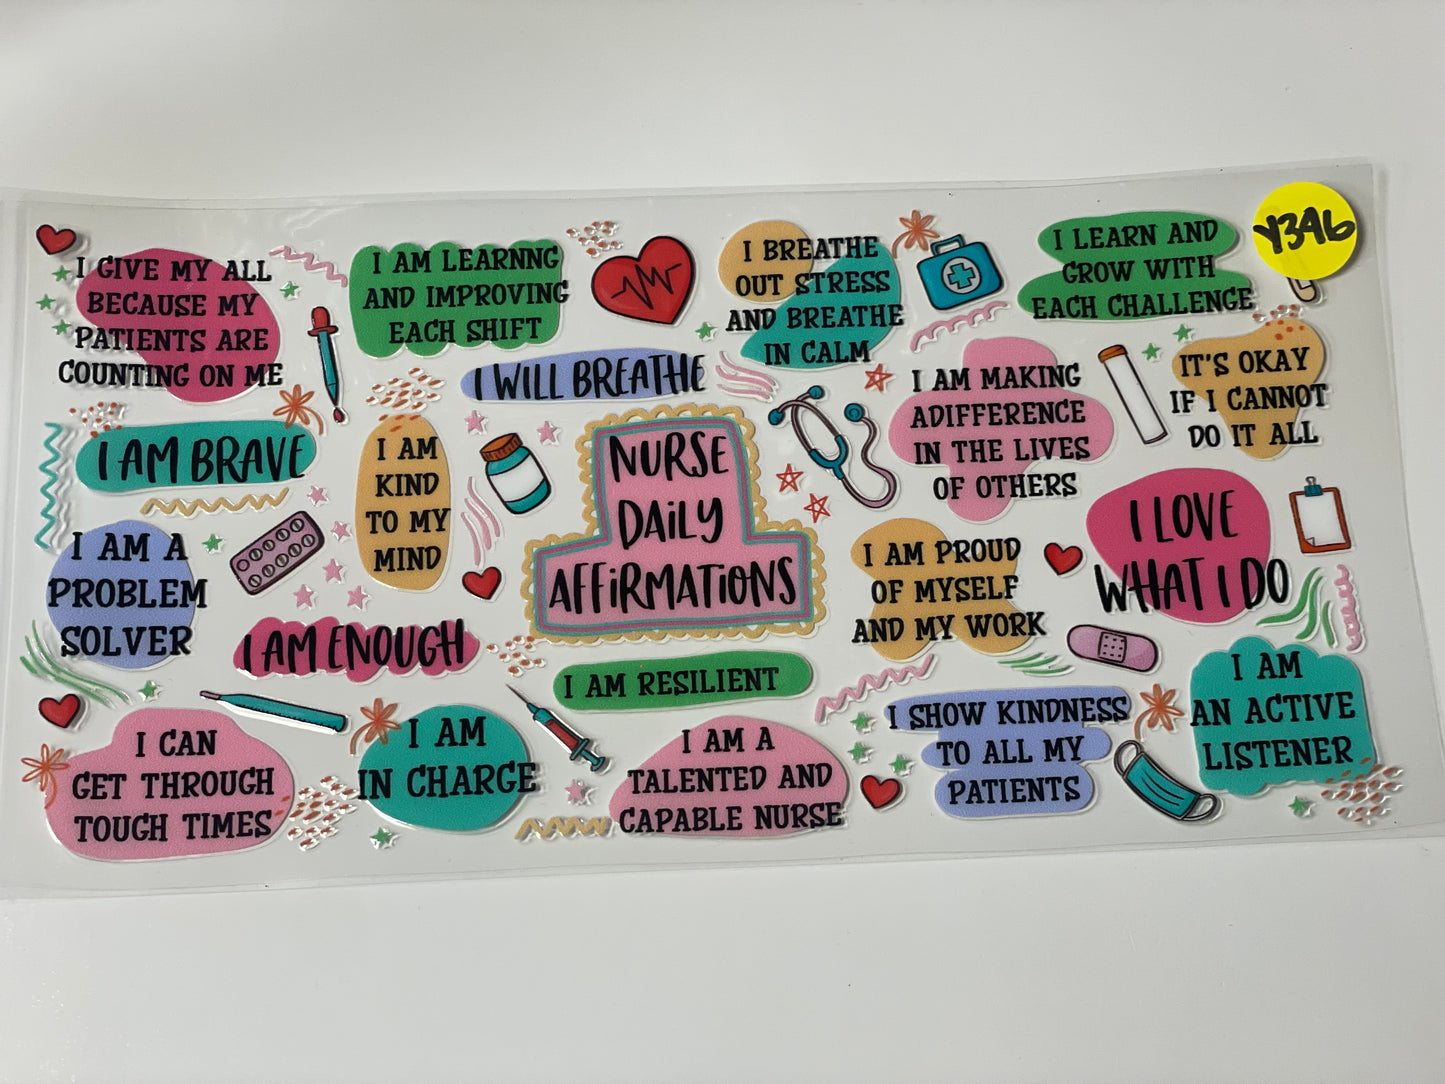 Y346
I GIVE MY ALL
BECAUSE MY
PATIENTS ARE
COUNTING ON ME
I AM LEARNNG
AND IMPROVING
EACH SHIFT
I BREATHE
OUT STRESS
AND BREATHE
IN CALM
I LEARN AND
GROW WITH
EACH CHALLENGE
I WILL BREATHE
I AM MAKING
ADIFFERENCE
IN THE LIVES
OF OTHERS
IT'S OKAY
IF I CANNOT
DO IT ALL
I AM BRAVE
I AM
KIND
TO MY
MIND
NURSE
DAILY
AFFIRMATIONS
I LOVE
WHAT I DO
I AM A
PROBLEM
SOLVER
I AM PROUD
OF MYSELF
AND MY WORK
I AM ENOUGH
I AM RESILIENT
I AM
AN ACTIVE
LISTENER
I CAN
GET THROUGH
TOUGH TIMES
I AM
IN CHARGE
I AM A
TALENTED AND
CAPABLE NURSE
I SHOW KINDNESS
TO ALL MY
PATIENTS